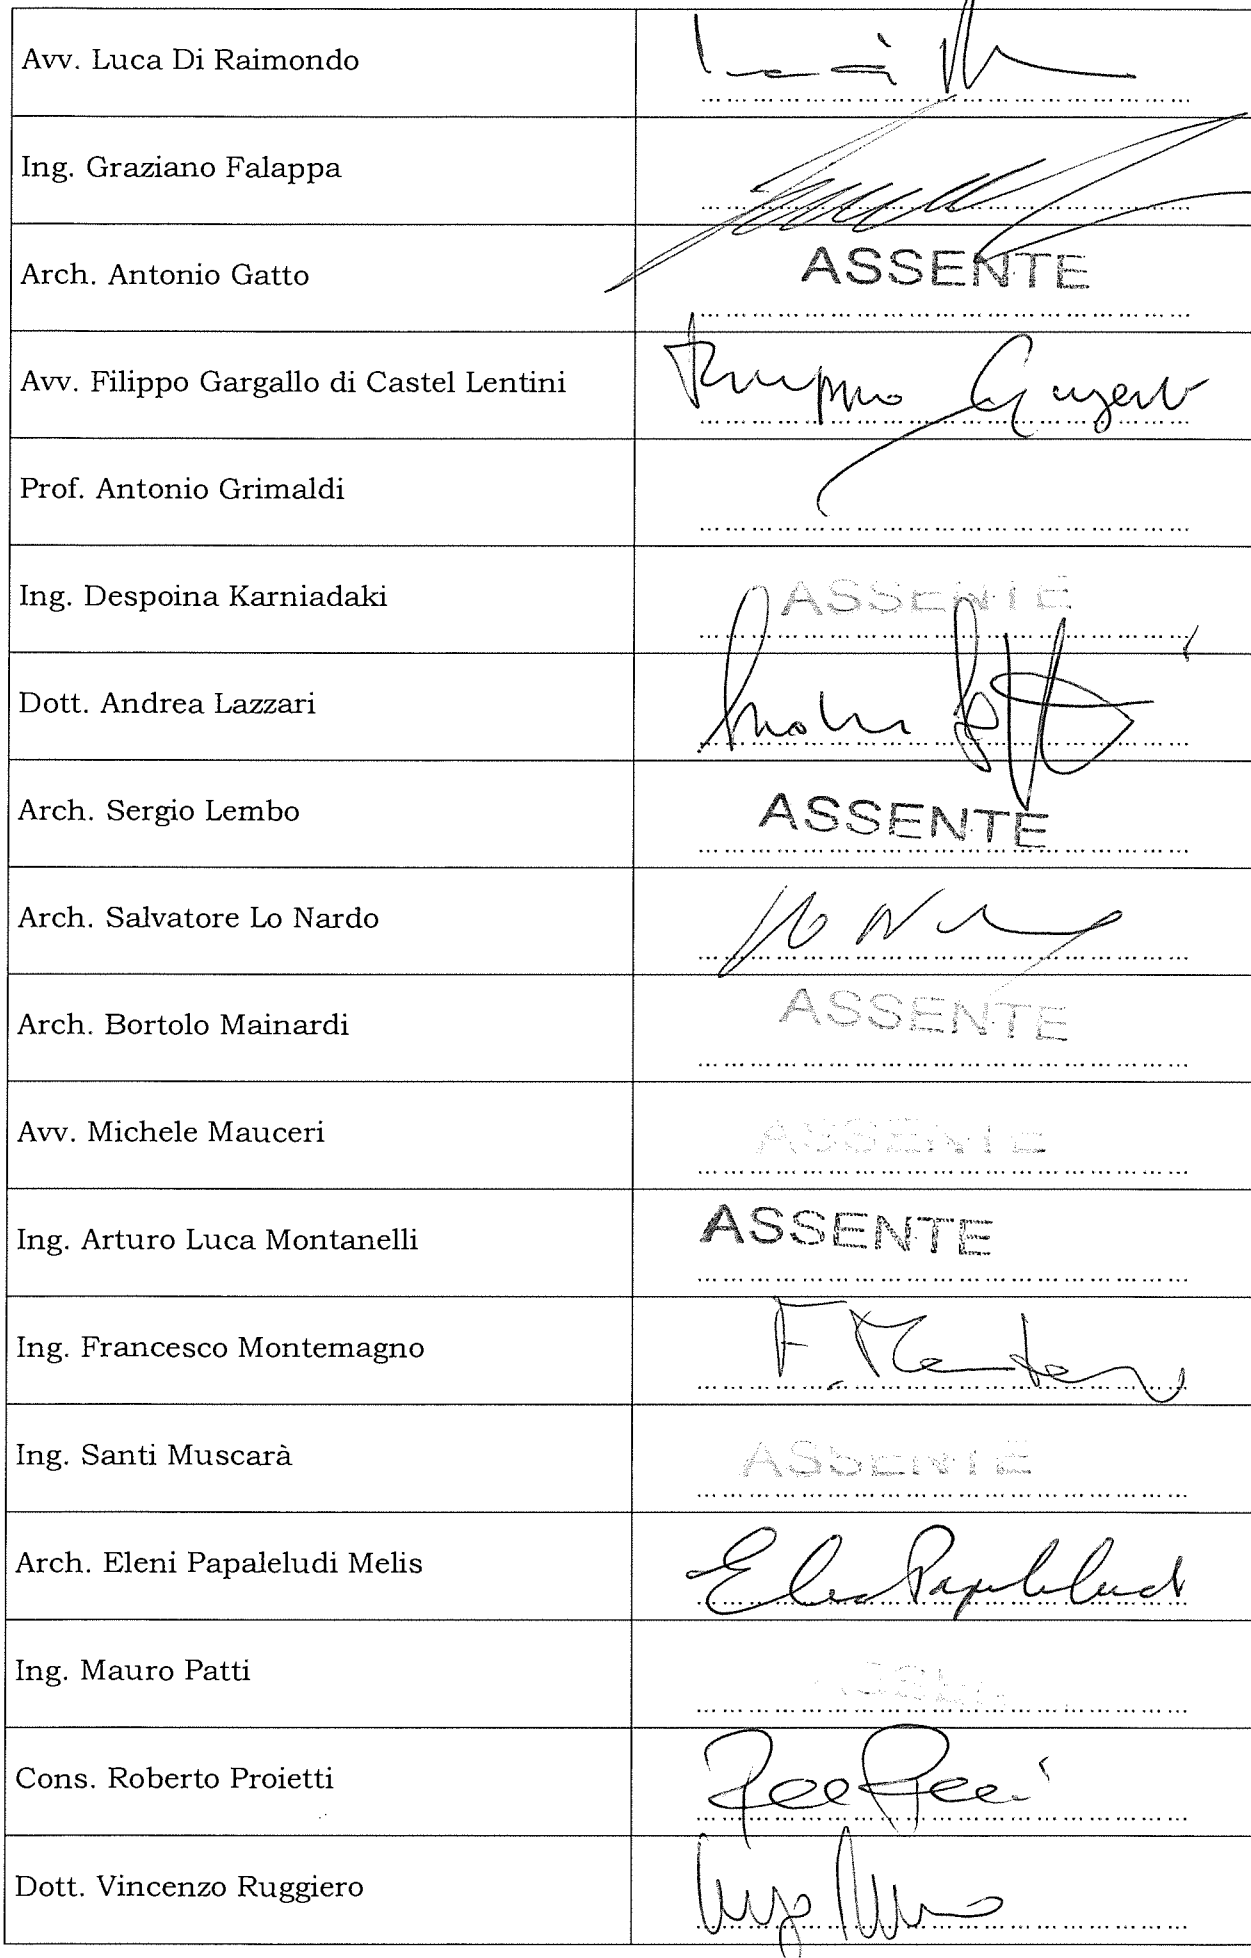 Avv. Luca Di Raimondo
Ing. Graziano Falappa
Arch. Antonio Gatto ASSENTE
Avv. Filippo Gargallo di Castel Lentini
Prof. Antonio Grimaldi
Ing. Despoina Karniadaki ASSENTE
Dott. Andrea Lazzari
Arch. Sergio Lembo ASSENTE
Arch. Salvatore Lo Nardo
Arch. Bortolo Mainardi ASSENTE
Avv. Michele Mauceri ASSENTE
Ing. Arturo Luca Montanelli ASSENTE
Ing. Francesco Montemagno
Ing. Santi Muscarà ASSENTE
Arch. Eleni Papaleludi Melis
Ing. Mauro Patti
Cons. Roberto Proietti
Dott. Vincenzo Ruggiero